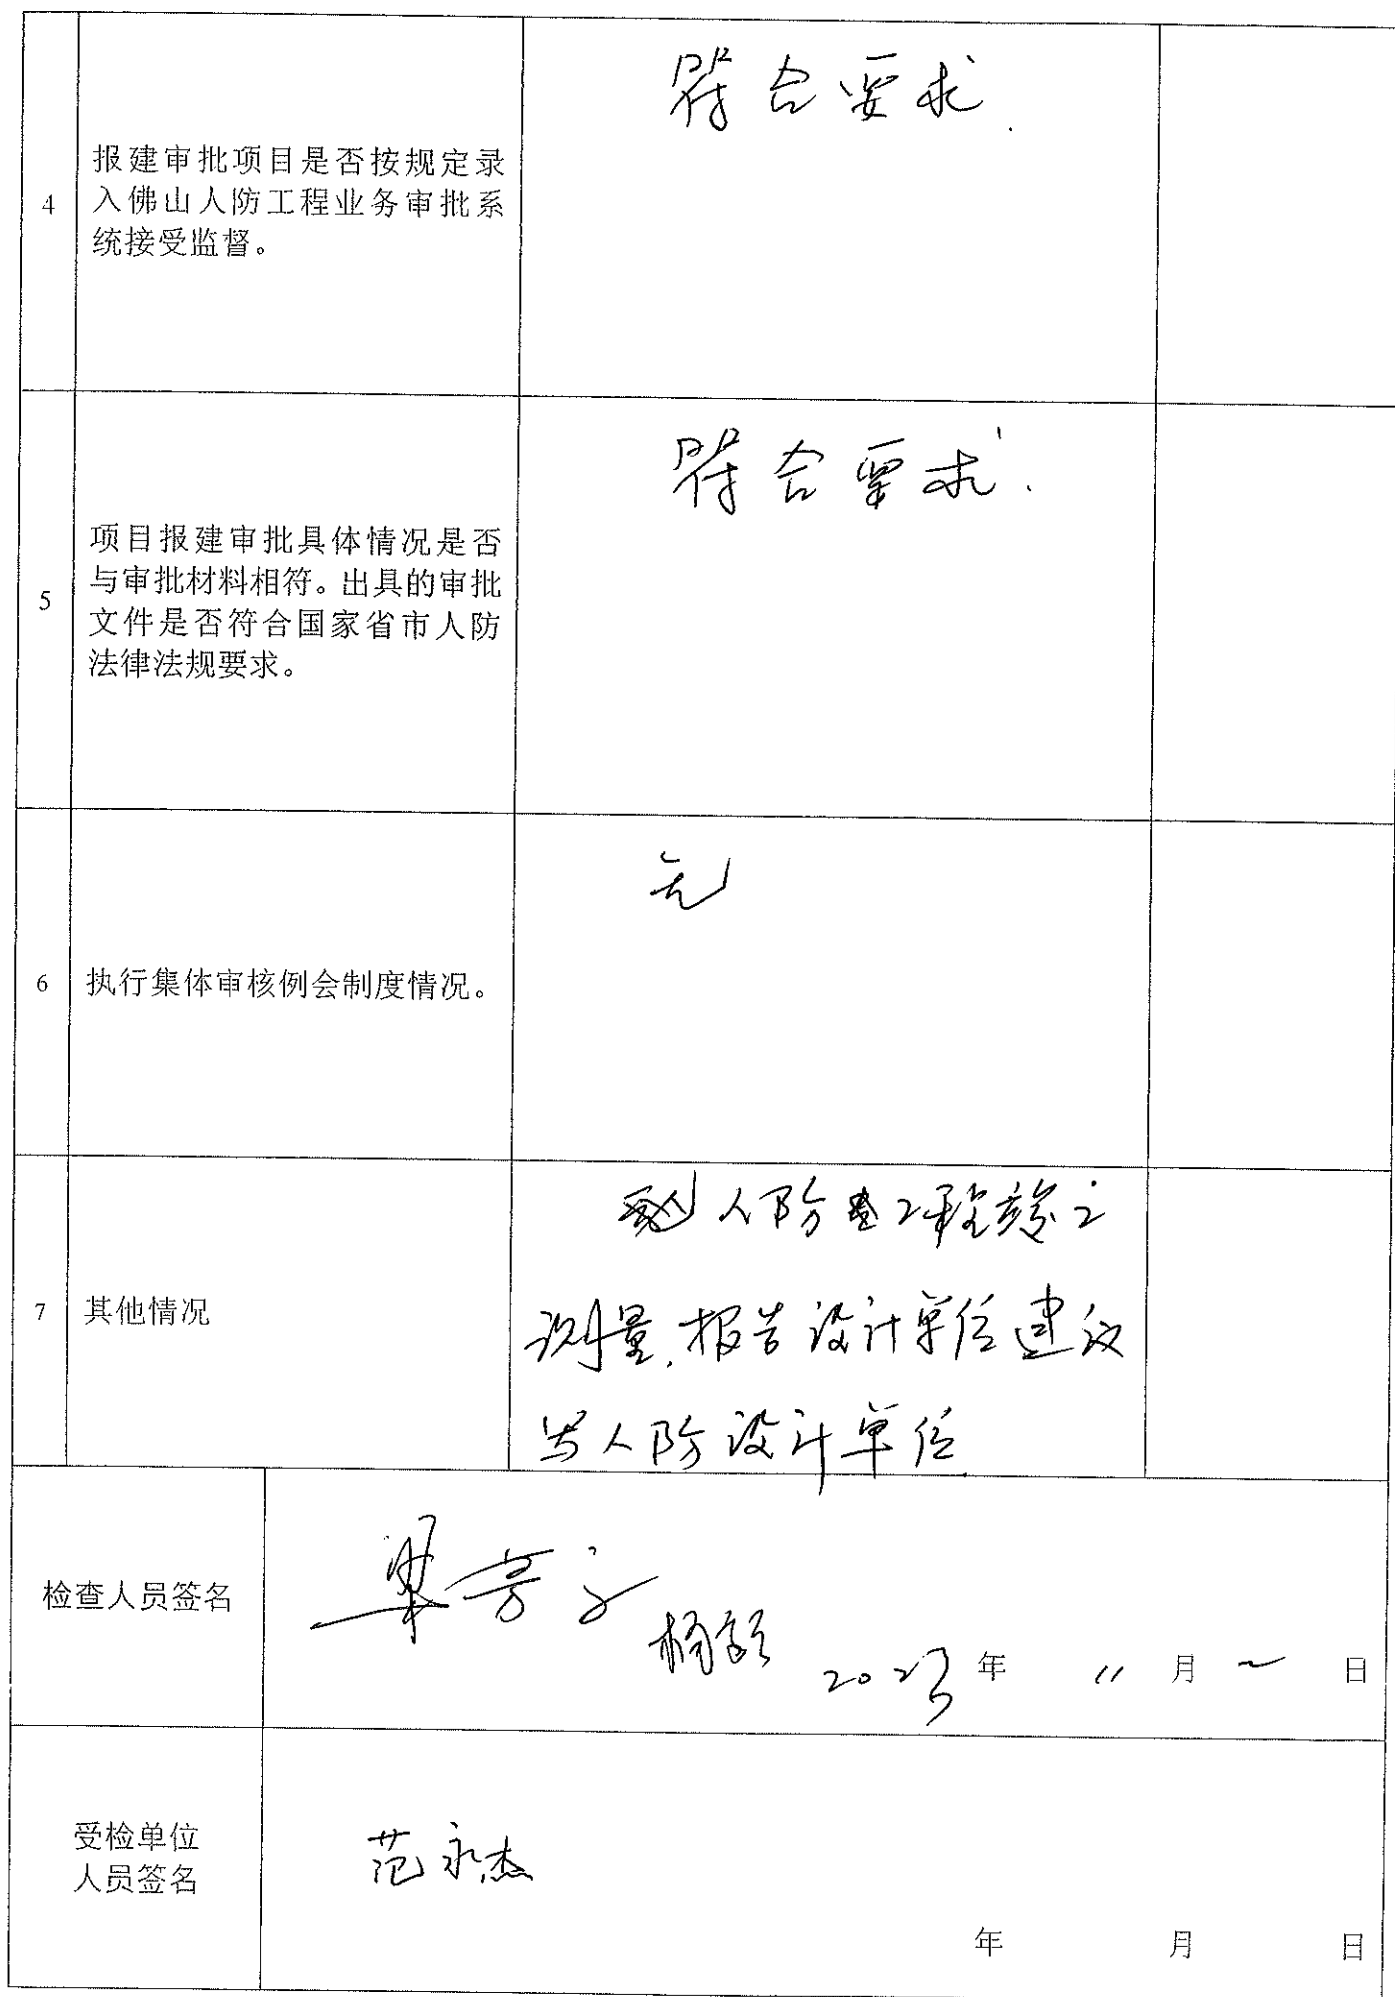 4
报建审批项目是否按规定录
入佛山人防工程业务审批系
统接受监督。
符合要求.
5
项目报建审批具体情况是否
与审批材料相符。出具的审批
文件是否符合国家省市人防
法律法规要求。
符合要求.
6
执行集体审核例会制度情况。
无
7
其他情况
人防工程竣工
测量报告设计单位建议
写人防设计单位
检查人员签名
梁芳
2023年 11月 日
受检单位
人员签名
范永杰
年 月 日